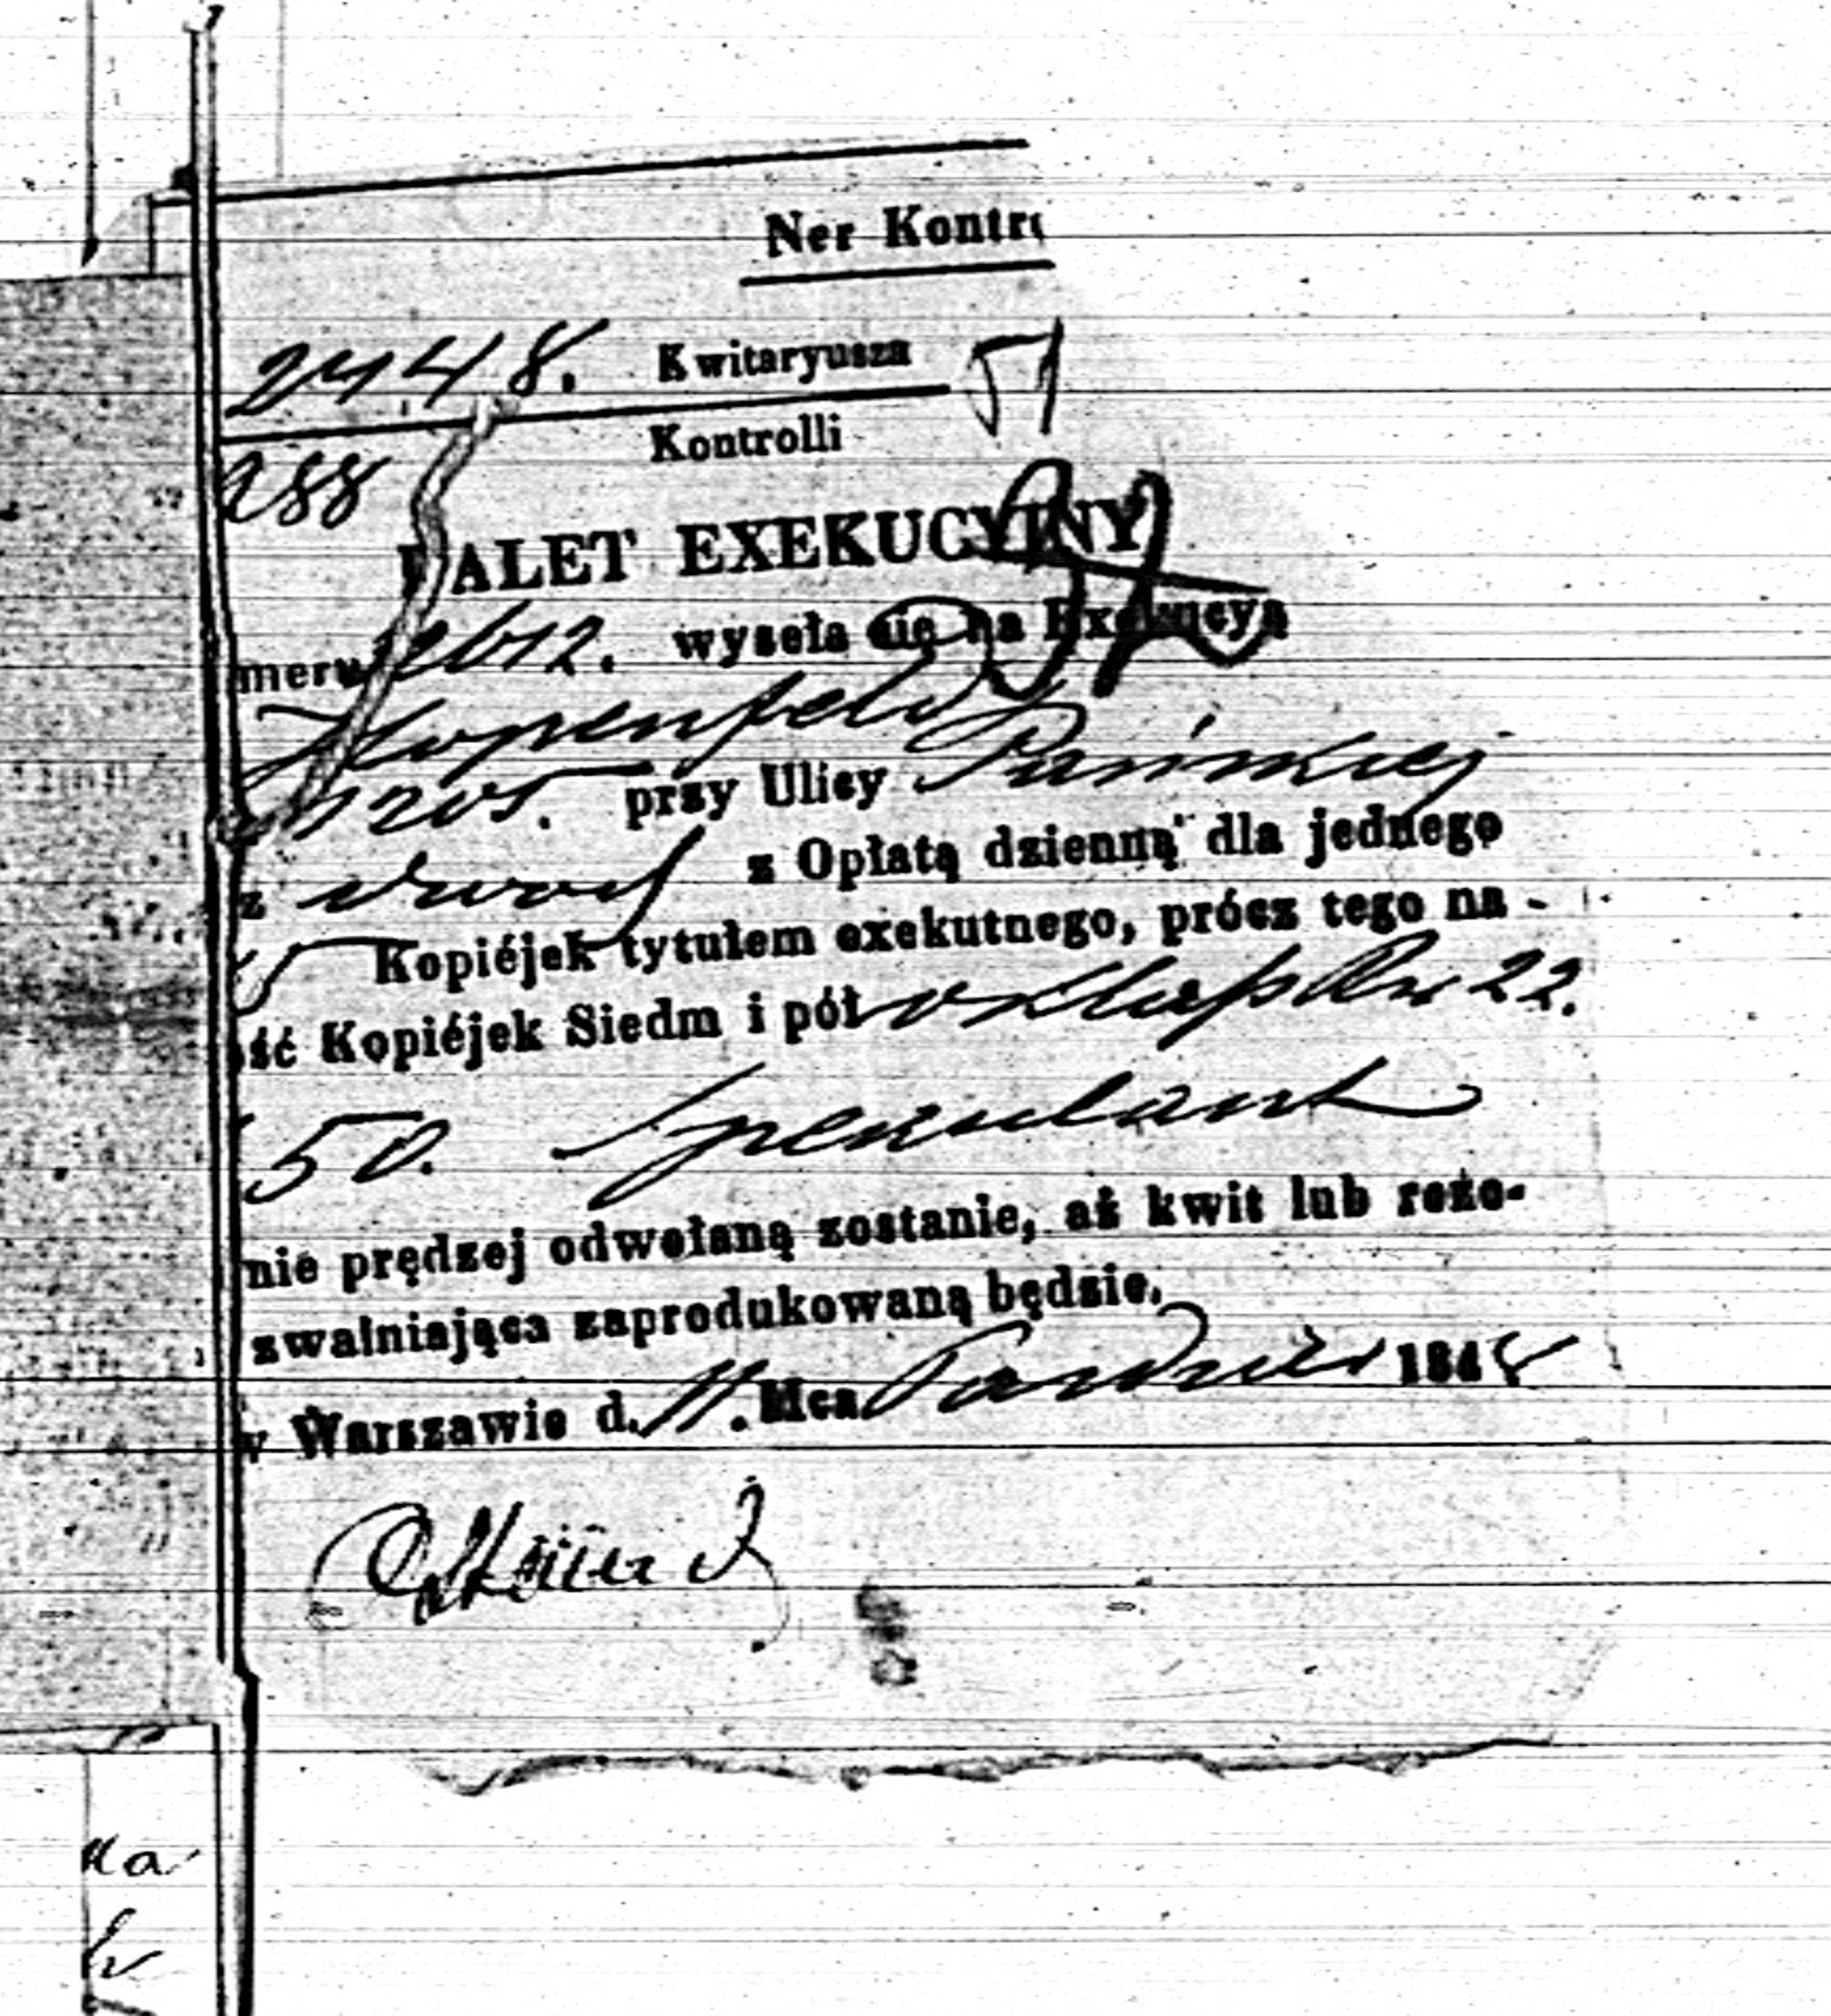 Ner Kontr
2448. Kwitaryusza 51
Kontrolli
288
PALET EXEKUCYINY
meru wyseła się na Exekucyą
Hopenfeld
1205. przy Ulicy Pańskiej
z dwoch z Opłatą dzienną dla jednego
Kopiéjek tytułem exekutnego, prócz tego na -
ść Kopiéjek Siedm i pół 22.
50. Spekulant
nie prędzej odwołaną zostanie, aż kwit lub rezo-
zwalniająca zaprodukowaną będzie.
w Warszawie d. 11. Mca Pazdzier 1848
na